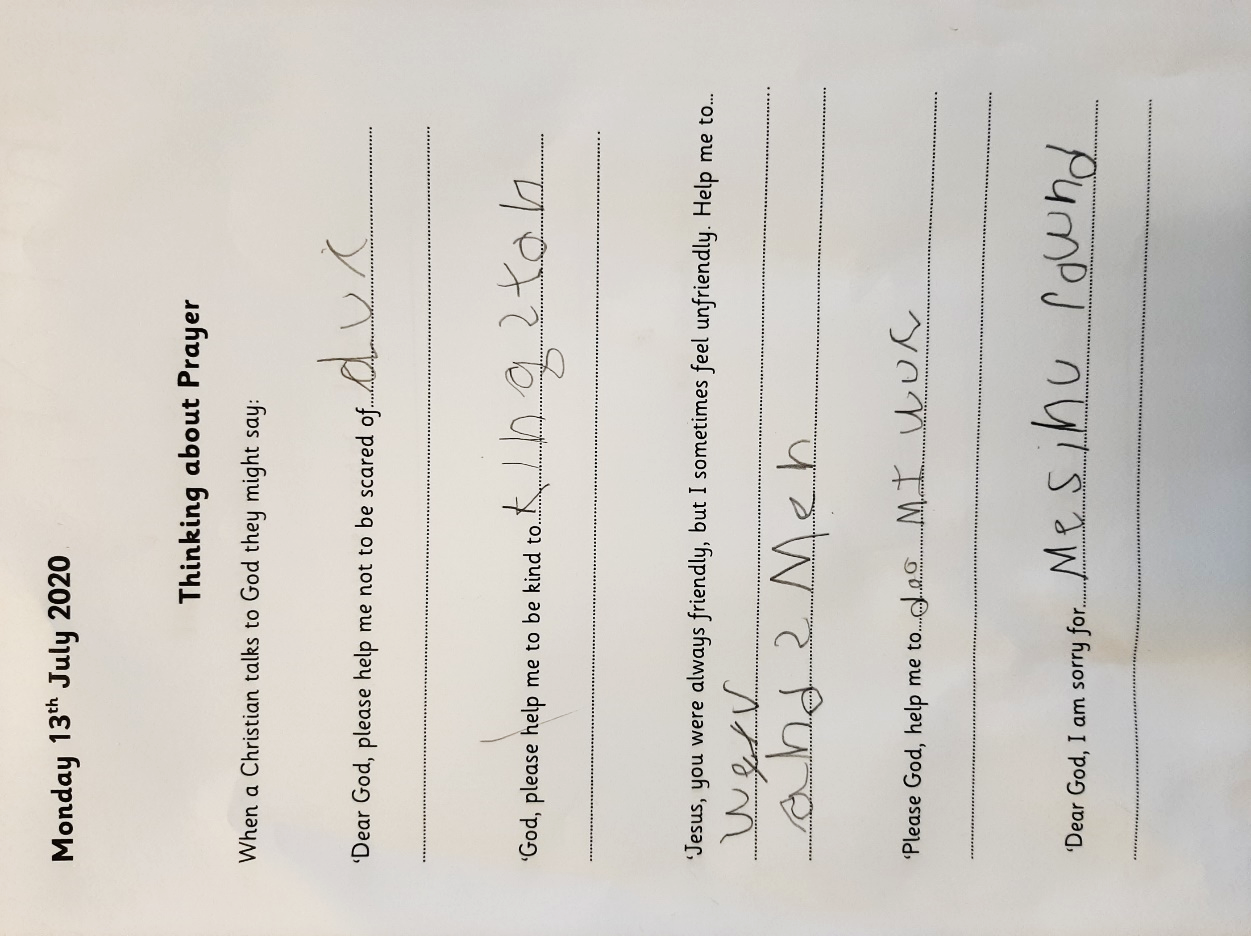 Monday 13th July 2020
Thinking about Prayer
When a Christian talks to God they might say:
'Dear God, please help me not to be scared of...
'God, please help me to be kind to...
'Jesus, you were always friendly, but I sometimes feel unfriendly. Help me to...
and 2 Men
'Please God, help me to... doo
'Dear God, I am sorry for... Mesihu